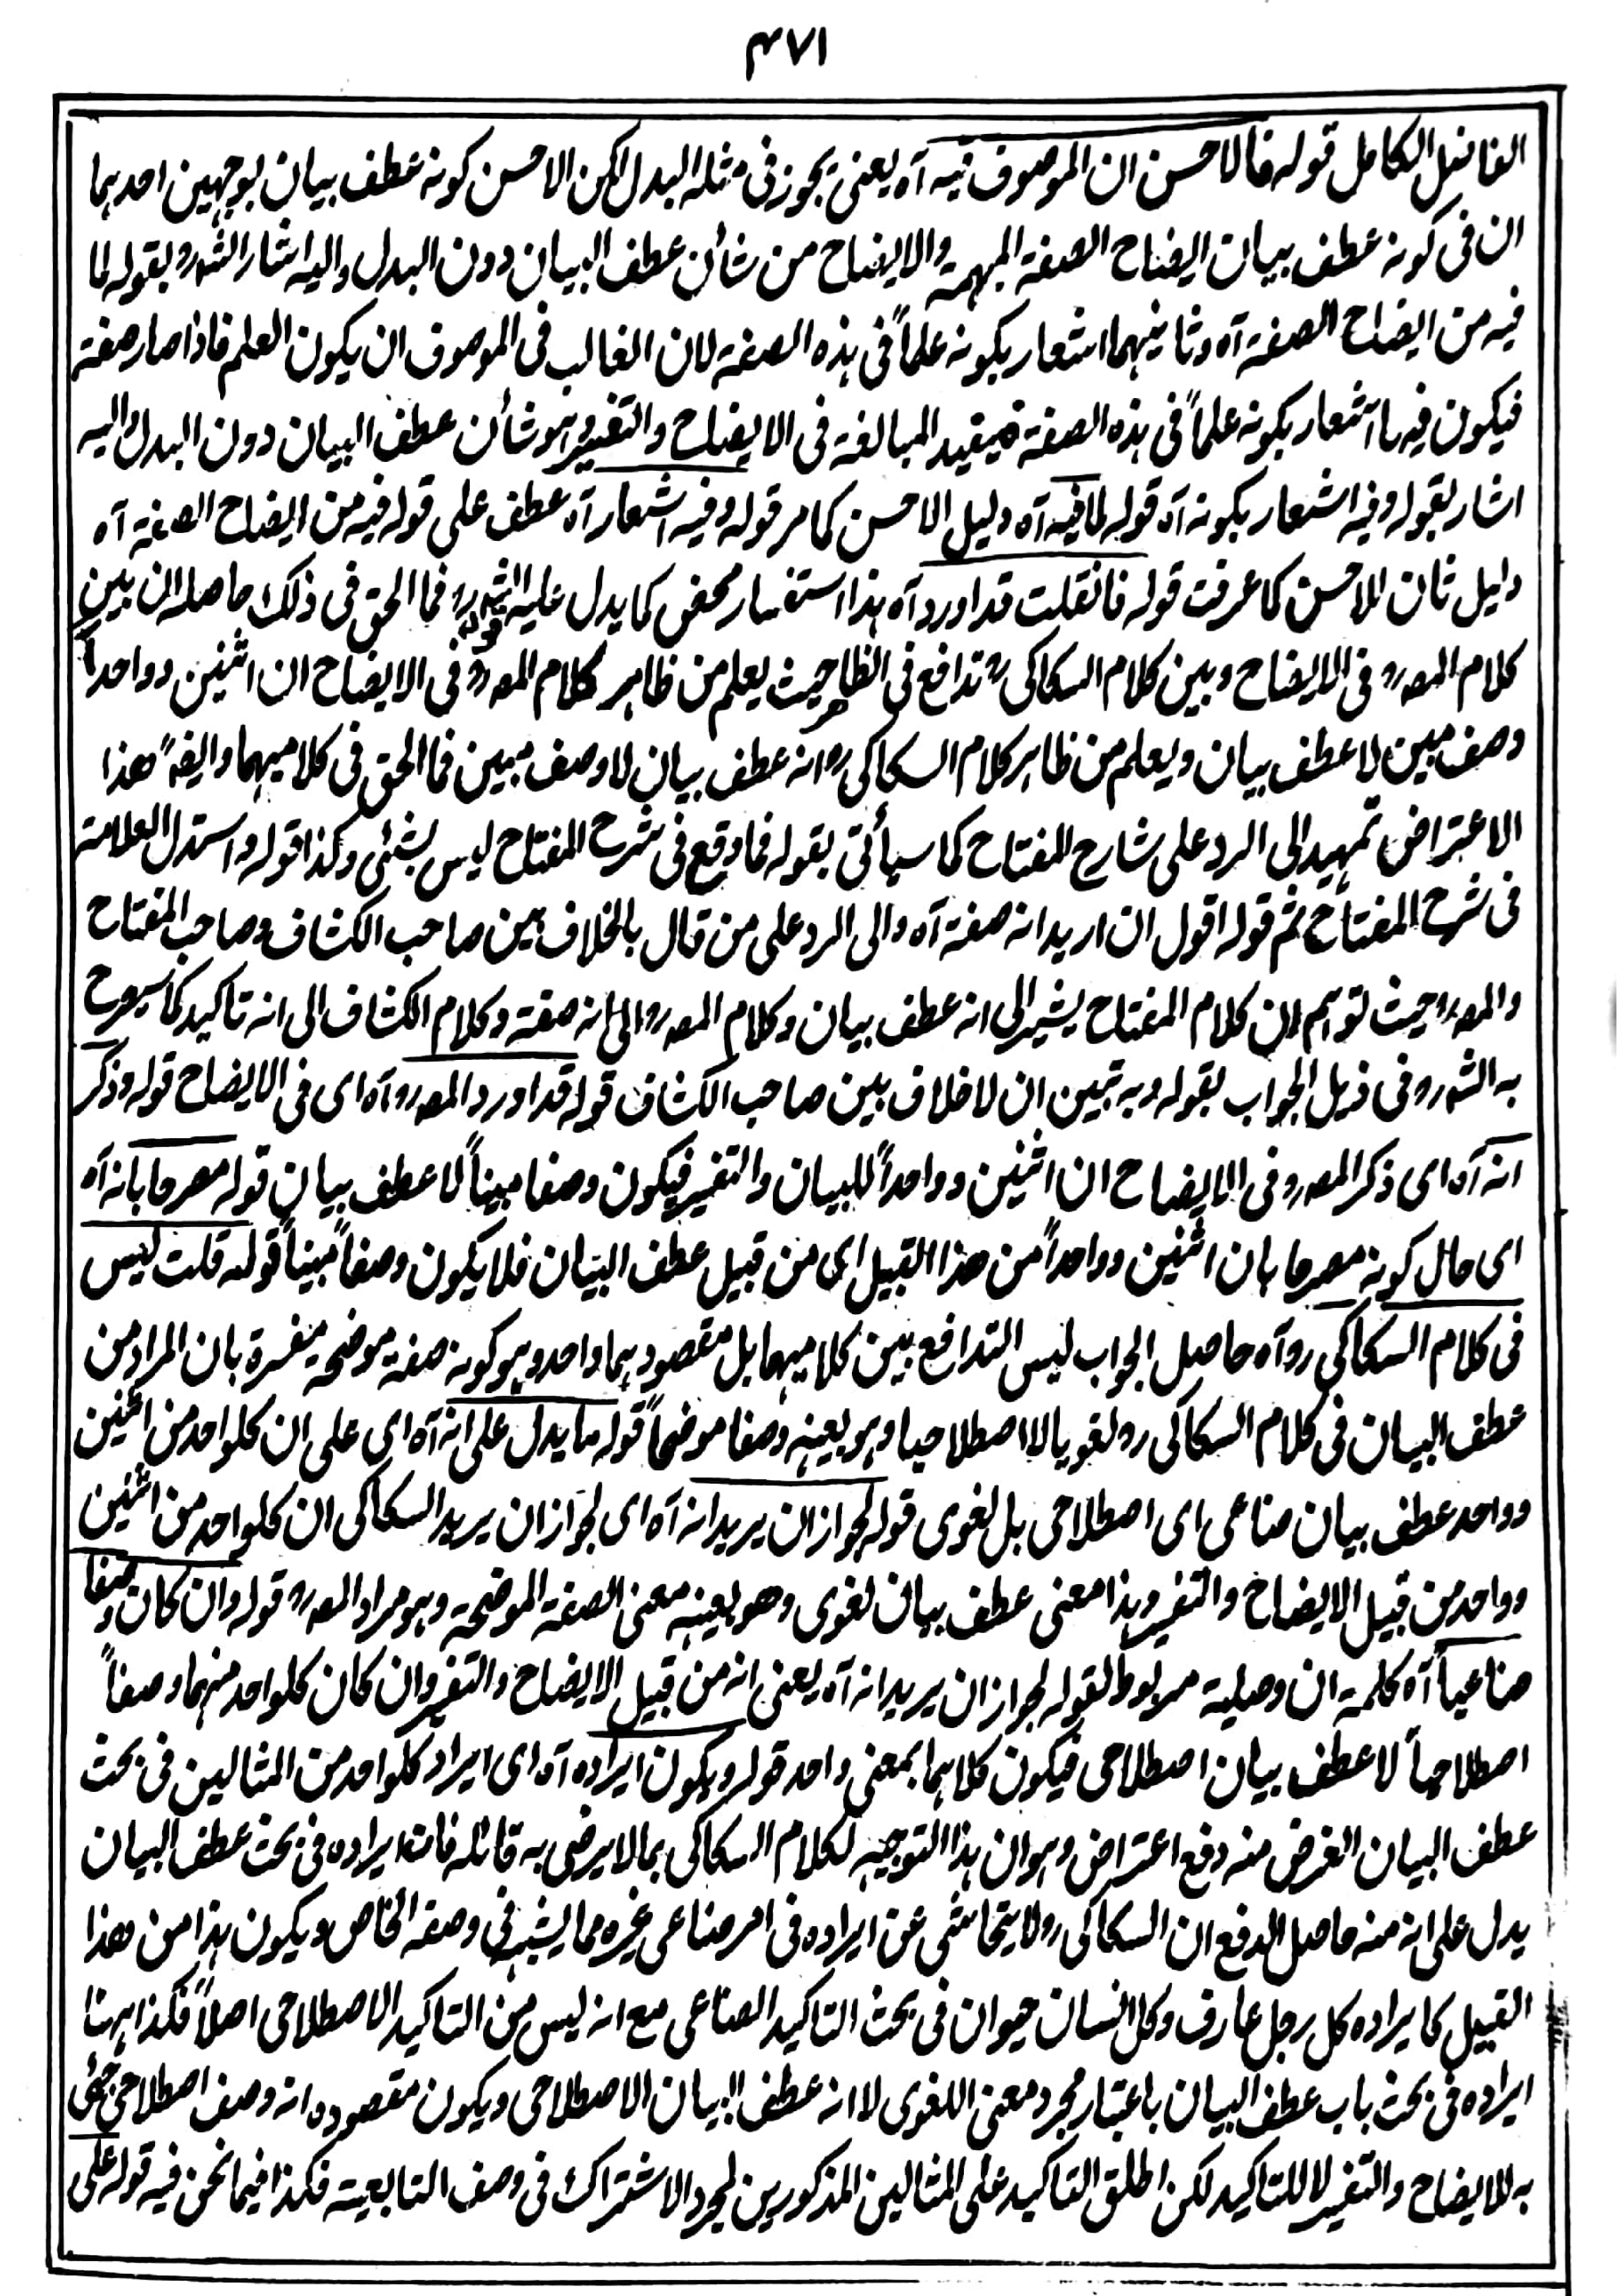 ٤٧١
الفاضل الكامل قوله فالاحسن ان الموصوف فيه آه يعنى يجوز فى مثله البدل لكن الاحسن كونه عطف بيان لوجهين احدهما
ان فى كونه عطف بيان ايضاح الصفة المبهمة والايضاح من شأن عطف البيان دون البدل واليه اشار الشرو بقوله لما
فيه من ايضاح الصفة آه وثانيهما اشعار بكونه علماً فى هذه الصفة لان الغالب فى الموصوف ان يكون العلم فاذا صار صفة
فيكون فيه اشعار بكونه علماً فى هذه الصفة فيفيد المبالغة فى الايضاح والتفسير وهو شأن عطف البيان دون البدل واليه
اشار بقوله وفيه اشعار بكونه آه قوله لما فيه آه دليل الاحسن كما مر قوله وفيه اشعار آه عطف على قوله فيه من ايضاح الصفة آه
دليل ثان للاحسن كما عرفت قوله فانقلت قد اورد آه هذا استفسار محض كما يدل عليه قول الشرو فما الحق فى ذلك حاصله ان بين
كلام المصرو فى الايضاح وبين كلام السكاكى رو تدافع فى الظاهر حيث يعلم من ظاهر كلام المصرو فى الايضاح ان اثنين وواحداً
وصف مبين لا عطف بيان ويعلم من ظاهر كلام السكاكى رو انه عطف بيان لا وصف مبين فما الحق فى كلاميهما وايضًا هذا
الاعتراض تمهيد الى الرد على شارح المفتاح كما سيأتى بقوله فما وقع فى شرح المفتاح ليس بشئى وكذا قوله واستدل العلامة
فى شرح المفتاح ثم قوله اقول ان اريد انه صفة آه والى الرد على من قال بالخلاف بين صاحب الكشاف وصاحب المفتاح
والمصرو حيث توهم ان كلام المفتاح يشير الى انه عطف بيان وكلام المصرو الى انه صفة وكلام الكشاف الى انه تاكيد كما سيصرح
به الشرو فى ذيل الجواب بقوله وبه تبين ان لا خلاف بين صاحب الكشاف قوله قد اورد المصرو آه اى فى الايضاح قوله وذكر
انه آه اى ذكر المصرو فى الايضاح ان اثنين وواحداً للبيان والتفسير فيكون وصفا مبيناً لا عطف بيان قوله مصرحا بانه آه
اى حال كونه مصرحا بان اثنين وواحداً من هذا القبيل اى من قبيل عطف البيان فلا يكون وصفاً مبيناً قوله قلت ليس
فى كلام السكاكى رو آه حاصل الجواب ليس التدافع بين كلاميهما بل مقصودهما واحد وهو كونه صفة موضحة مفسرة بان المراد من
عطف البيان فى كلام السكاكى رو لغويا لا اصطلاحيا وهو بعينه وصفا موضحاً قوله ما يدل على انه آه اى على ان كلواحد من اثنين
وواحد عطف بيان صناعى اى اصطلاحى بل لغوى قوله لجواز ان يريد انه آه اى لجواز ان يريد السكاكى ان كلواحد من اثنين
وواحد من قبيل الايضاح والتفسير وهذا معنى عطف بيان لغوى وهو بعينه معنى الصفة الموضحة وهو مراد المصرو قوله وان كان وصفا
صناعياً آه كلمة ان وصلية مربوط لقوله لجواز ان يريد انه آه يعنى انه من قبيل الايضاح والتفسير وان كان كلواحد منهما وصفاً
اصطلاحياً لا عطف بيان اصطلاحى فيكون كلاهما بمعنى واحد قوله ويكون ايراده آه اى ايراد كلواحد من المثالين فى بحث
عطف البيان الغرض منه دفع اعتراض وهو ان هذا التوجيه لكلام السكاكى بما لا يرضى به قائله فان ايراده فى بحث عطف البيان
يدل على انه منه حاصل الدفع ان السكاكى رو لا يتحاشى عن ايراده فى امر صناعى غيره مما يشبه فى وصفه الخاص ويكون هذا من هذا
القبيل كايراده كل رجل عارف وكل انسان حيوان فى بحث التاكيد الصناعى مع انه ليس من التاكيد الاصطلاحى اصلاً فكذا ههنا
ايراده فى بحث باب عطف البيان باعتبار مجرد معنى اللغوى لا انه عطف البيان الاصطلاحى ويكون مقصوده انه وصف اصطلاحى جئى
به للايضاح والتفسير لا للتاكيد لكن اطلق التاكيد على المثالين المذكورين لمجرد الاشتراك فى وصف التابعية فكذا فيما نحن فيه قوله على